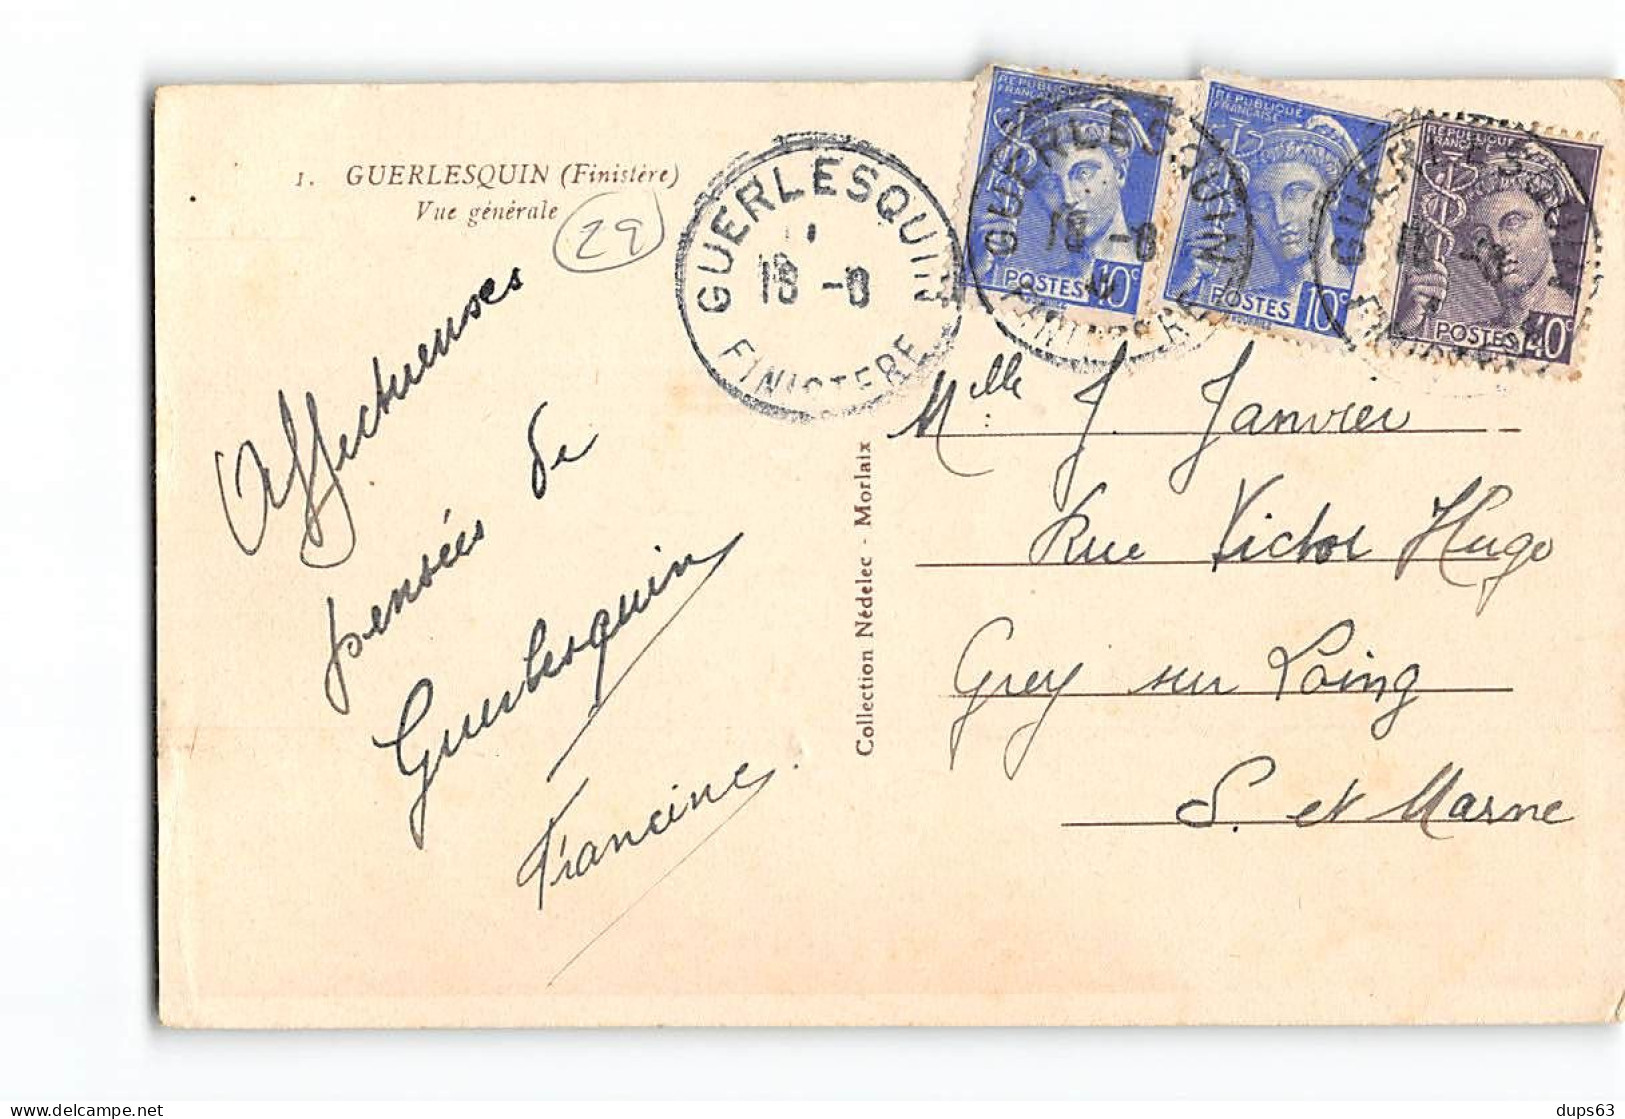 1. GUERLESQUIN (Finistère)
Vue générale
29
Affectueuses
pensées de
Guerlesquin
Francine.
Collection Nédelec - Morlaix
GUERLESQUIN
18 -8
FINISTERE
REPUBLIQUE
FRANÇAISE
POSTES 10c
GUERLESQUIN
18 -8
FINISTERE
REPUBLIQUE
FRANÇAISE
POSTES 10c
REPUBLIQUE
FRANÇAISE
POSTES 40c
GUERLESQUIN
18 -8
Mlle J. Janvier
Rue Victor Hugo
Grey sur Loing
S. et Marne
dups63